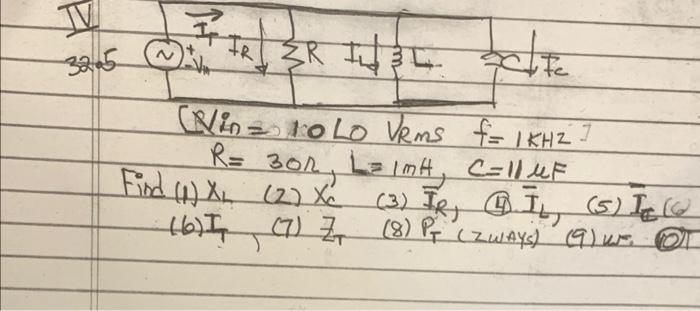 IV
32.5
I_T I_R R I_L L C I_C
+ -
~ Vin
[Vin = 10 L0 VRMS f = 1KHZ]
R = 30Ω, L = 1mH, C = 11 μF
Find (1) XL (2) Xc (3) I̅R, (4) I̅L, (5) I̅C
(6) IT, (7) ZT (8) PT (2 WAYS) (9)